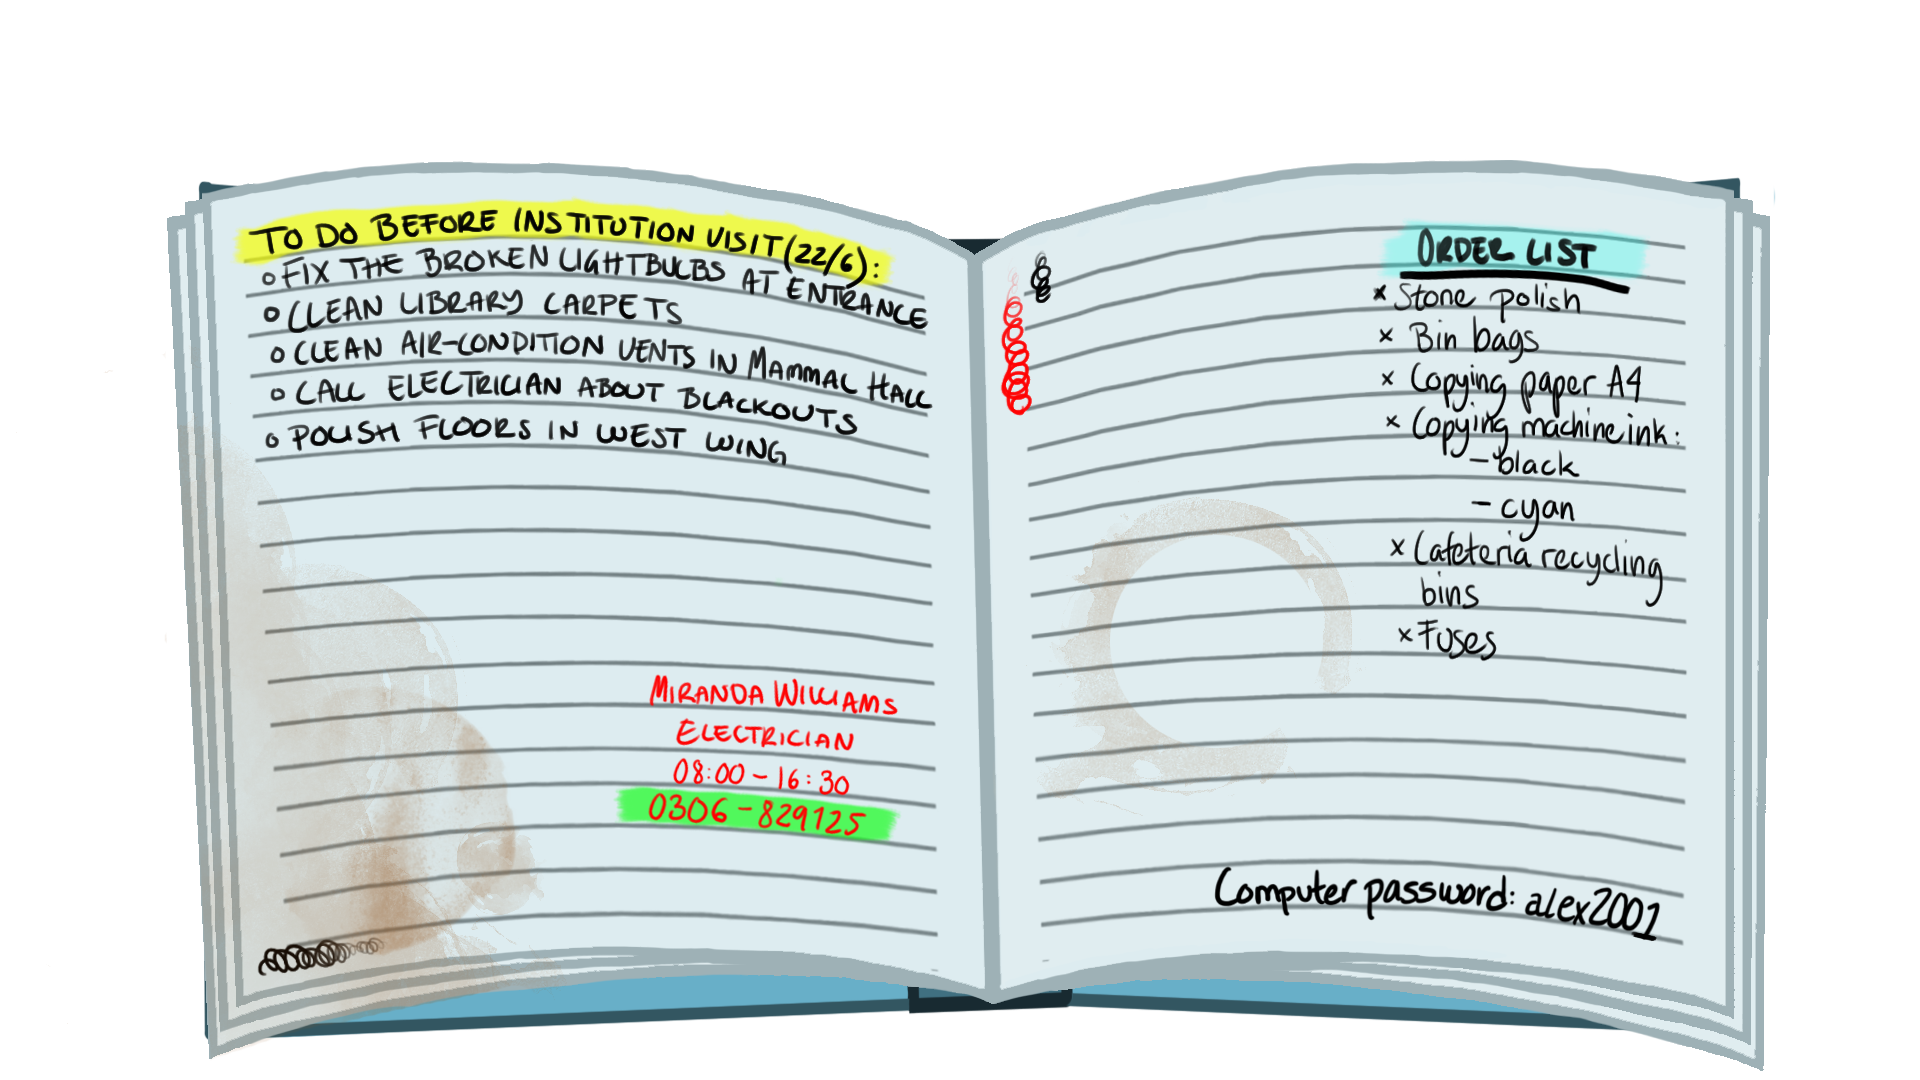 TO DO BEFORE INSTITUTION VISIT (22/6):
o FIX THE BROKEN LIGHTBULBS AT ENTRANCE
o CLEAN LIBRARY CARPETS
o CLEAN AIR-CONDITION VENTS IN MAMMAL HALL
o CALL ELECTRICIAN ABOUT BLACKOUTS
o POLISH FLOORS IN WEST WING
MIRANDA WILLIAMS
ELECTRICIAN
08:00 - 16:30
0306-829125
ORDER LIST
x Stone polish
x Bin bags
x Copying paper A4
x Copying machine ink:
- black
- cyan
x Cafeteria recycling
bins
x Fuses
Computer password: alex2001